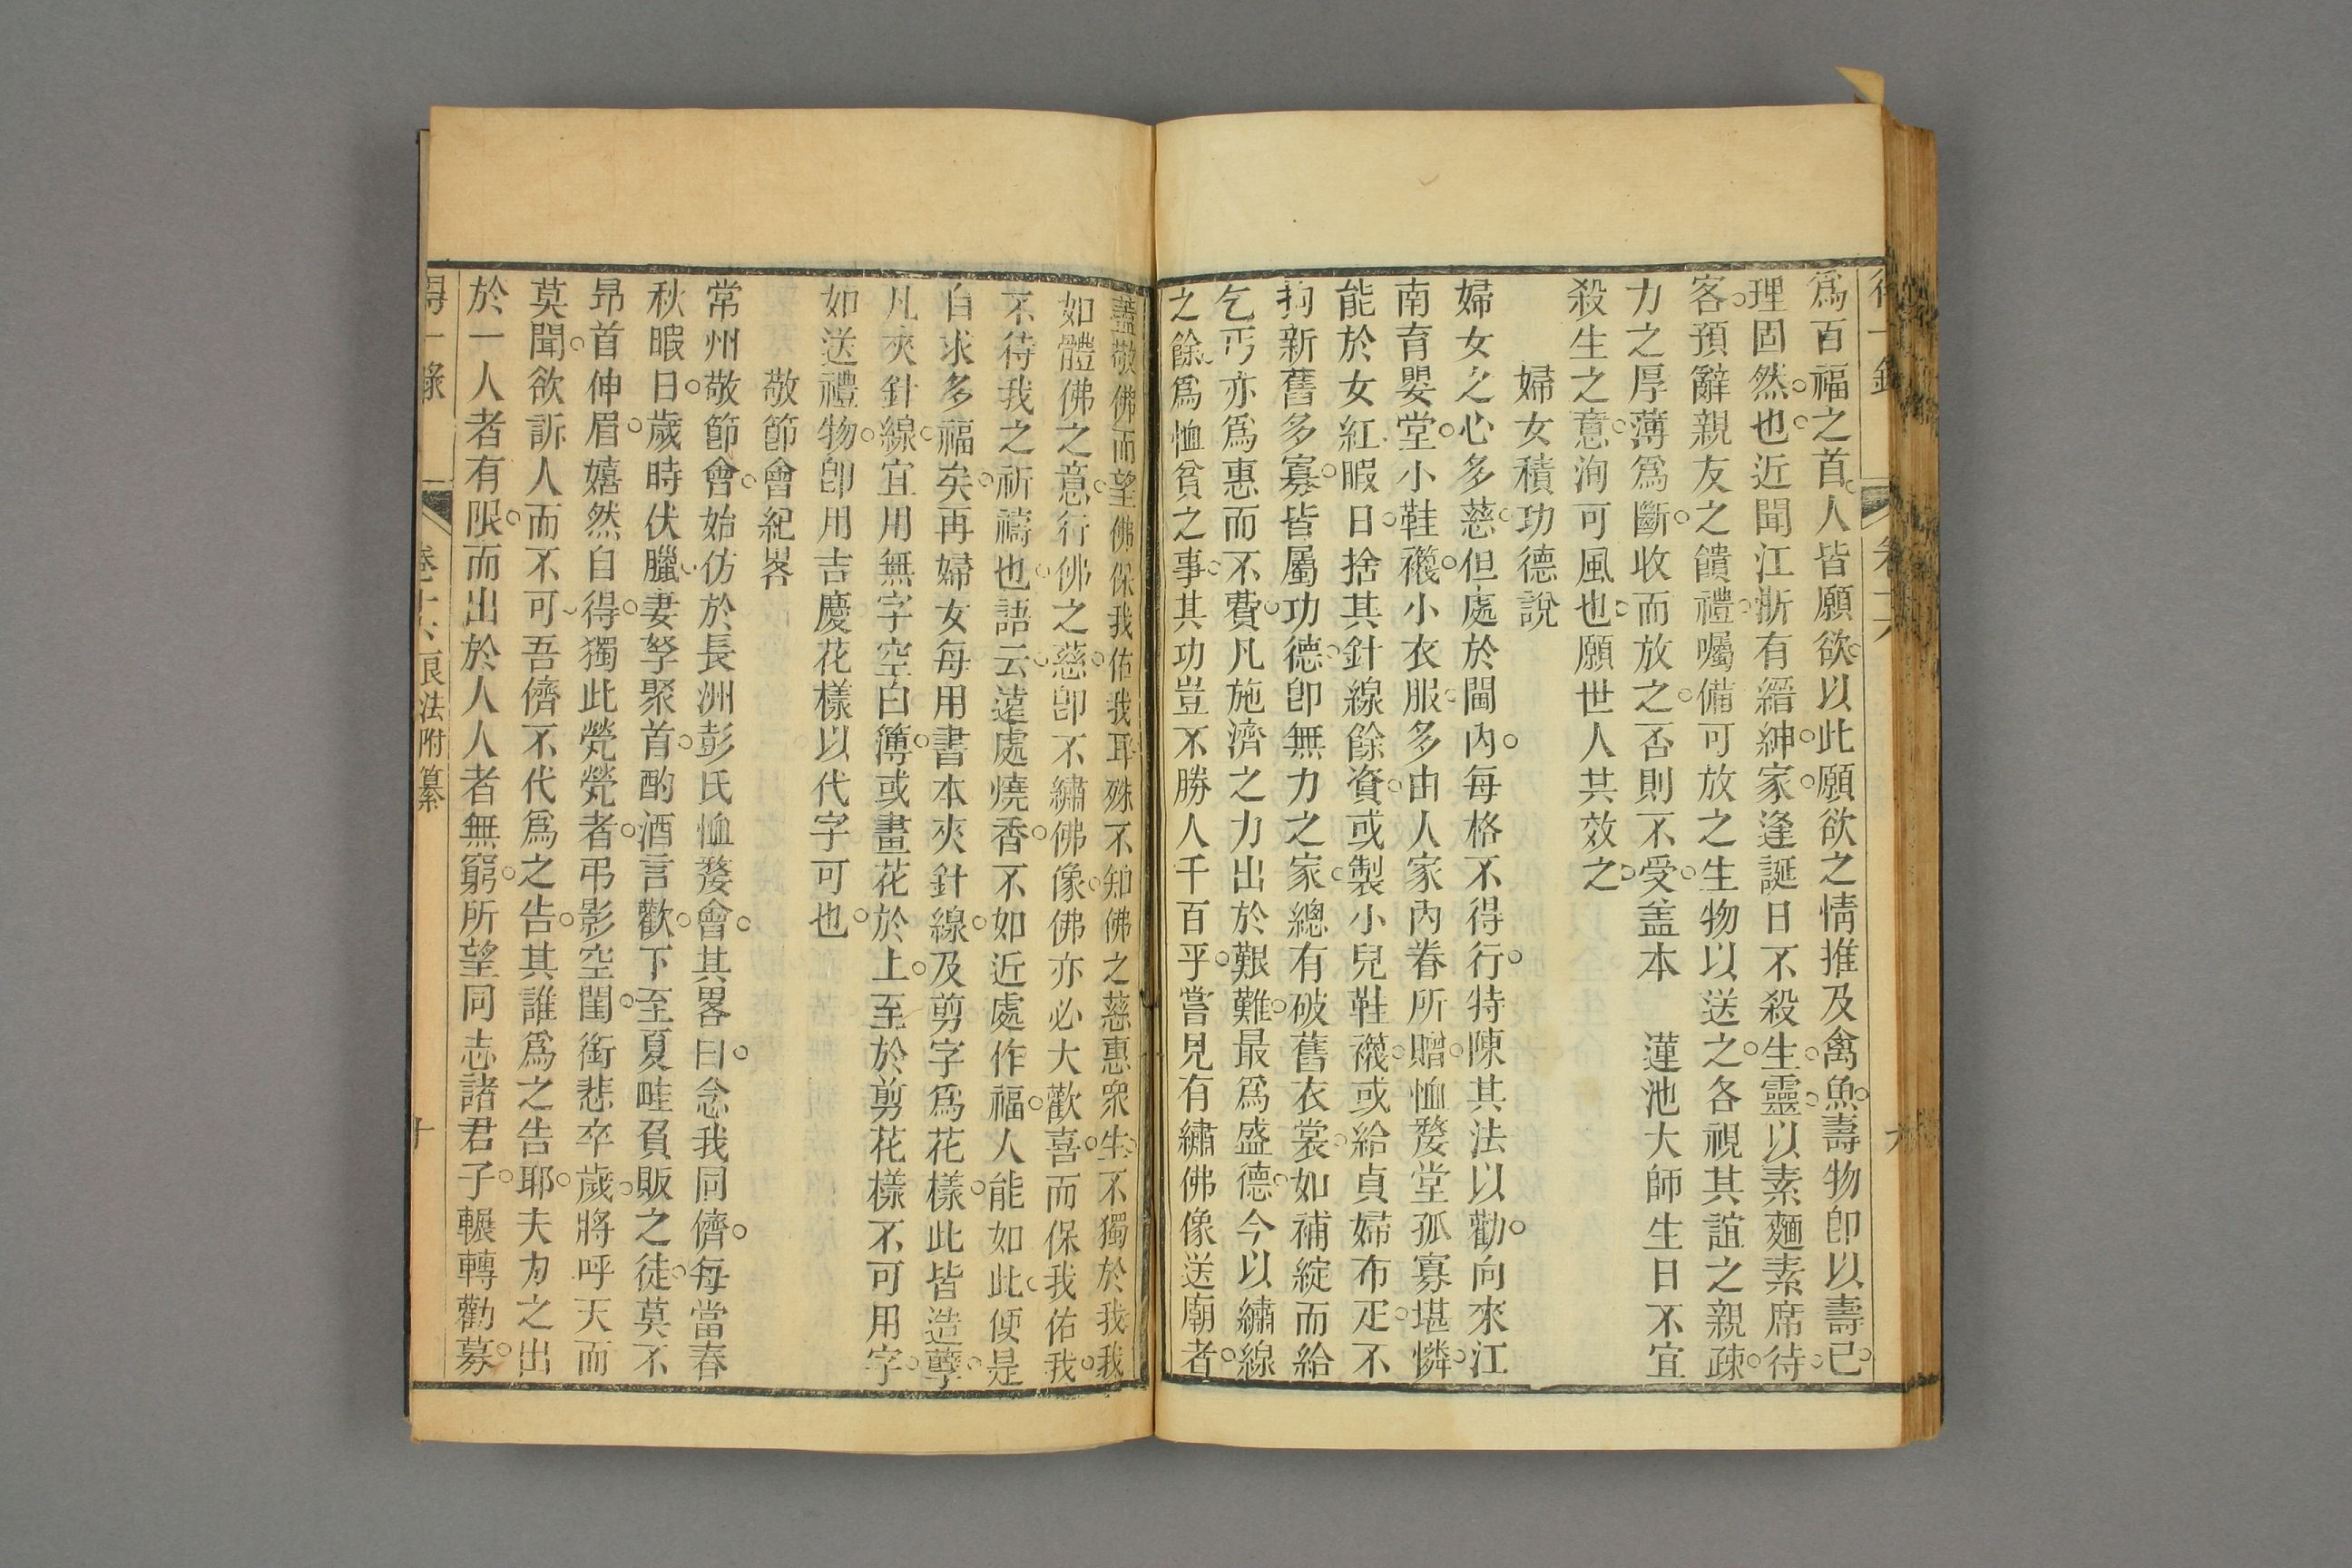 爲百福之首人皆願欲以此願欲之情推及禽魚壽物卽以壽己
理固然也近聞江浙有縉紳家逢誕日不殺生靈以素麵素席待
客預辭親友之饋禮囑備可放之生物以送之各視其誼之親疎
力之厚薄爲斷收而放之否則不受盖本 蓮池大師生日不宜
殺生之意洵可風也願世人共效之
婦女積功德說
婦女之心多慈但處於閫內每格不得行特陳其法以勸向來江
南育嬰堂小鞋襪小衣服多由人家內眷所贈恤嫠堂孤寡堪憐
能於女紅暇日捨其針線餘資或製小兒鞋襪或給貞婦布疋不
拘新舊多寡皆屬功德卽無力之家總有破舊衣裳如補綻而給
乞丐亦爲惠而不費凡施濟之力出於艱難最爲盛德今以繡線
之餘爲恤貧之事其功豈不勝人千百乎嘗見有繡佛像送廟者
蓋敬佛而望佛保我佑我耳殊不知佛之慈惠衆生不獨於我我
如體佛之意行佛之慈卽不繡佛像佛亦必大歡喜而保我佑我
不待我之祈禱也語云遠處燒香不如近處作福人能如此便是
自求多福矣再婦女每用書本夾針線及剪字爲花樣此皆造孽
凡夾針線宜用無字空白簿或畫花於上至於剪花樣不可用字
如送禮物卽用吉慶花樣以代字可也
敬節會紀畧
常州敬節會始仿於長洲彭氏恤嫠會其畧曰念我同儕每當春
秋暇日歲時伏臘妻孥聚首酌酒言歡下至夏畦負販之徒莫不
昂首伸眉嬉然自得獨此煢煢者弔影空閨銜悲卒歲將呼天而
莫聞欲訴人而不可吾儕不代爲之告其誰爲之告耶夫力之出
於一人者有限而出於人人者無窮所望同志諸君子輾轉勸募
得一錄 卷十六良法附纂 十